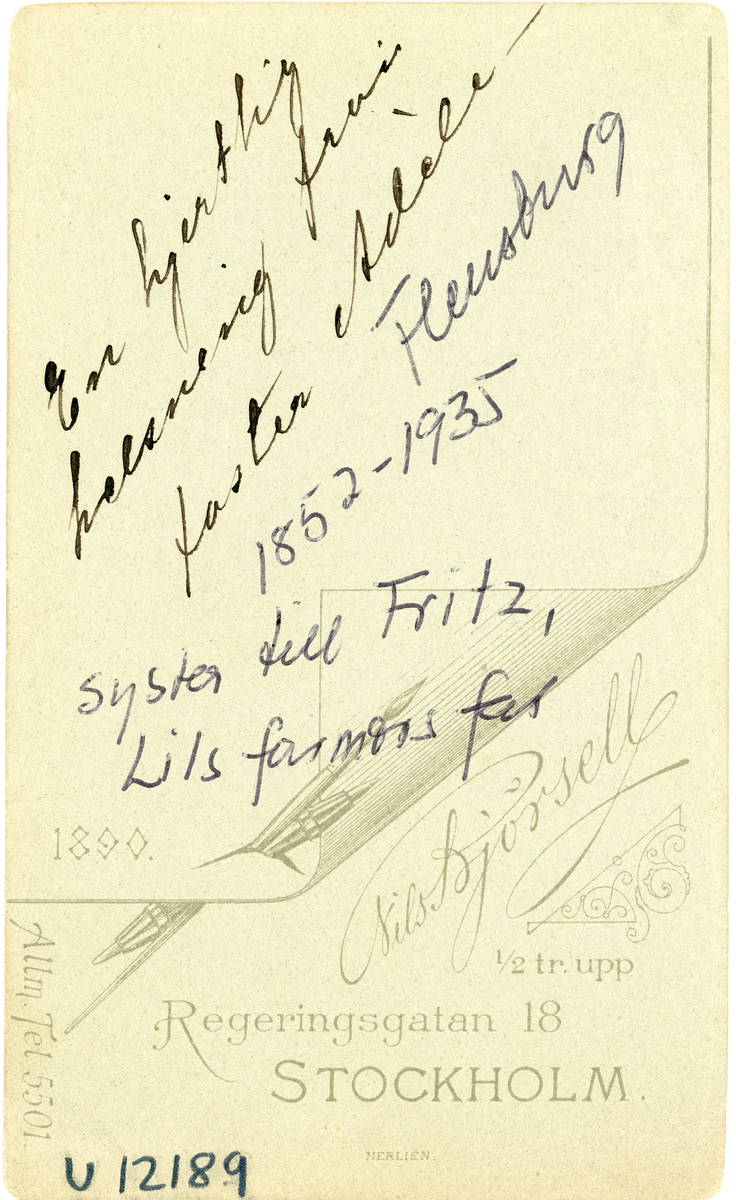 En hjertlig
helsnenig från
faster Adèle -
Flensburg
1852-1935
syster till Fritz,
Lils farmors far
1890.
Nils Kjörsell
1/2 tr. upp
Allm. Tel. 5501.
Regeringsgatan 18
STOCKHOLM.
NERLIEN.
U 12189